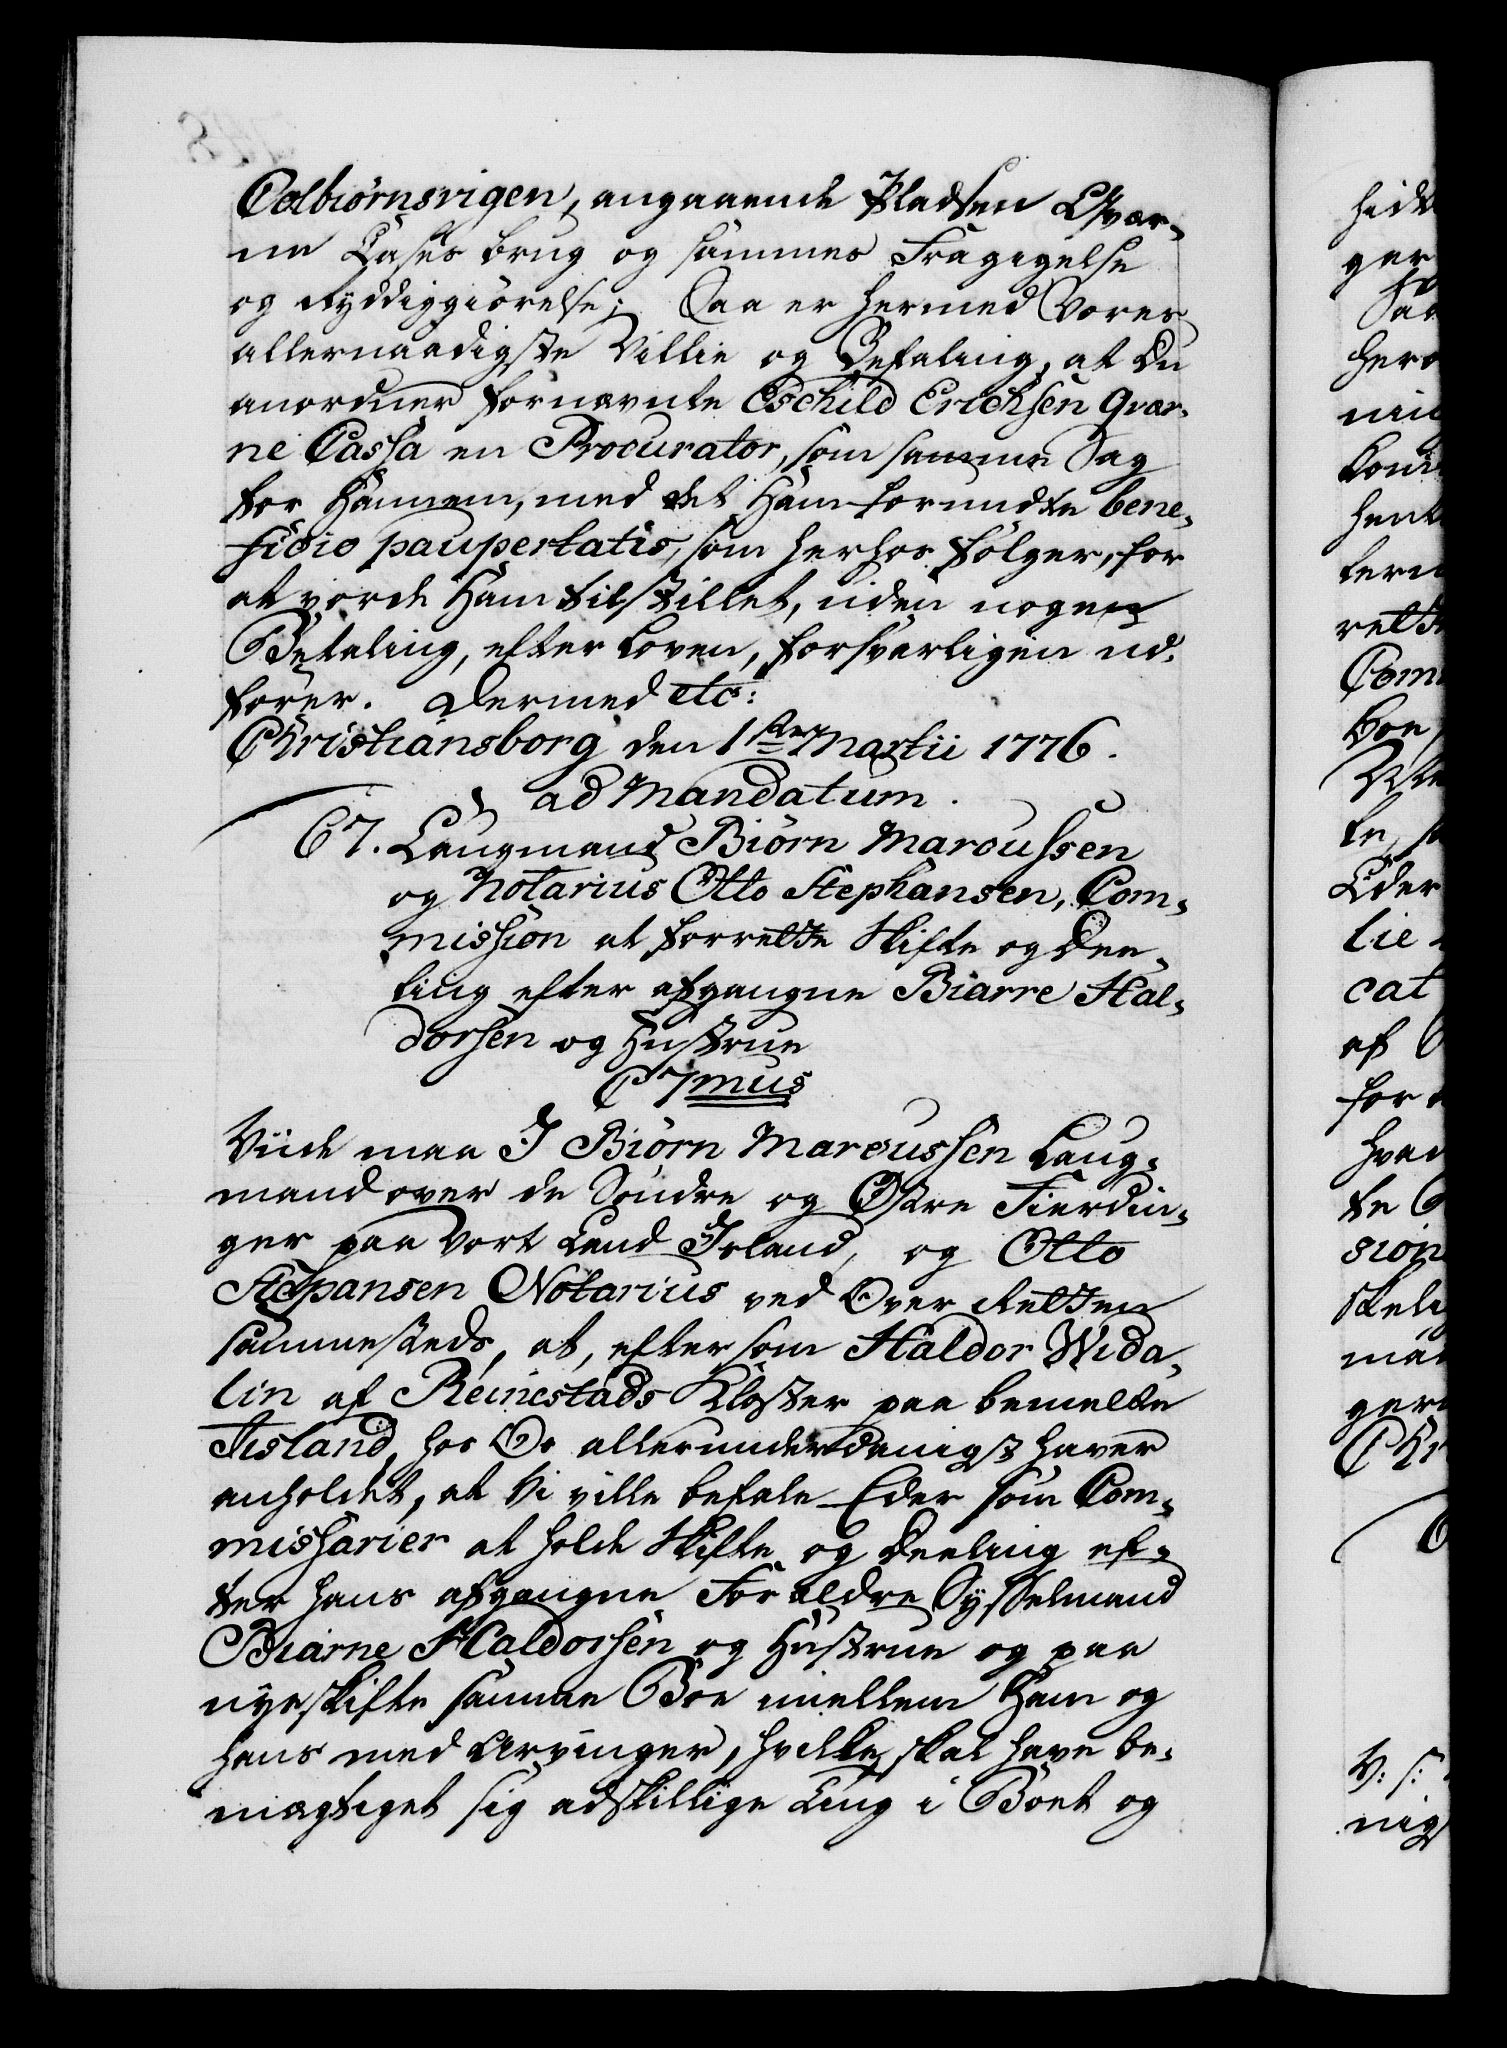 Colbiörnsvigen, angaaende Pladsen Qvær-
ne Casses brug og sammes Fragigelse
og Ryddiggiörelse; Saa er hermed Vores
allernaadigste Villie og Befaling, at Du
anordner fornævnte Eschild Erichsen Qvær-
ne Cassa en Procurator, som samme Sag
for Hannem, med det Ham forundte bene-
ficio paupertatis, som herhos fölger, for
at vorde Ham tilstillet, uden nogen
Betaling, efter Loven, forsvarligen ud-
förer. Dermed etc:
Christiansborg den 1ste Martii 1776.
ad Mandatum.
67. Laugmand Biörn Marcussen
og Notarius Otto Stephansen, Com-
mission at forrette Skifte og Dee-
ling efter afgangne Biarre Hal-
dorsen og Hustrue
C7mus
Viide maa I Biörn Marcussen Laug-
mand over de Söndre og Östre Fierdin-
ger paa Vort Land Island, og Otto
Stepansen Notarius ved Over Retten
sammesteds, at, eftersom Haldor Wida-
lin af Reinestads Kloster paa bemelte
Iisland, hos Os allerunderdanigst haver
anholdet, at Vi ville befale Eder som Com-
missarier at holde Skifte og Deeling ef-
ter hans afgangne Forældre Sysselmand
Biarne Haldorsen og Hustrue og paa
nye skifte samme Boe imellem Ham og
hans med Arvinger, hvilke skal have be-
mægtiget sig adskillige Ting i Boet og